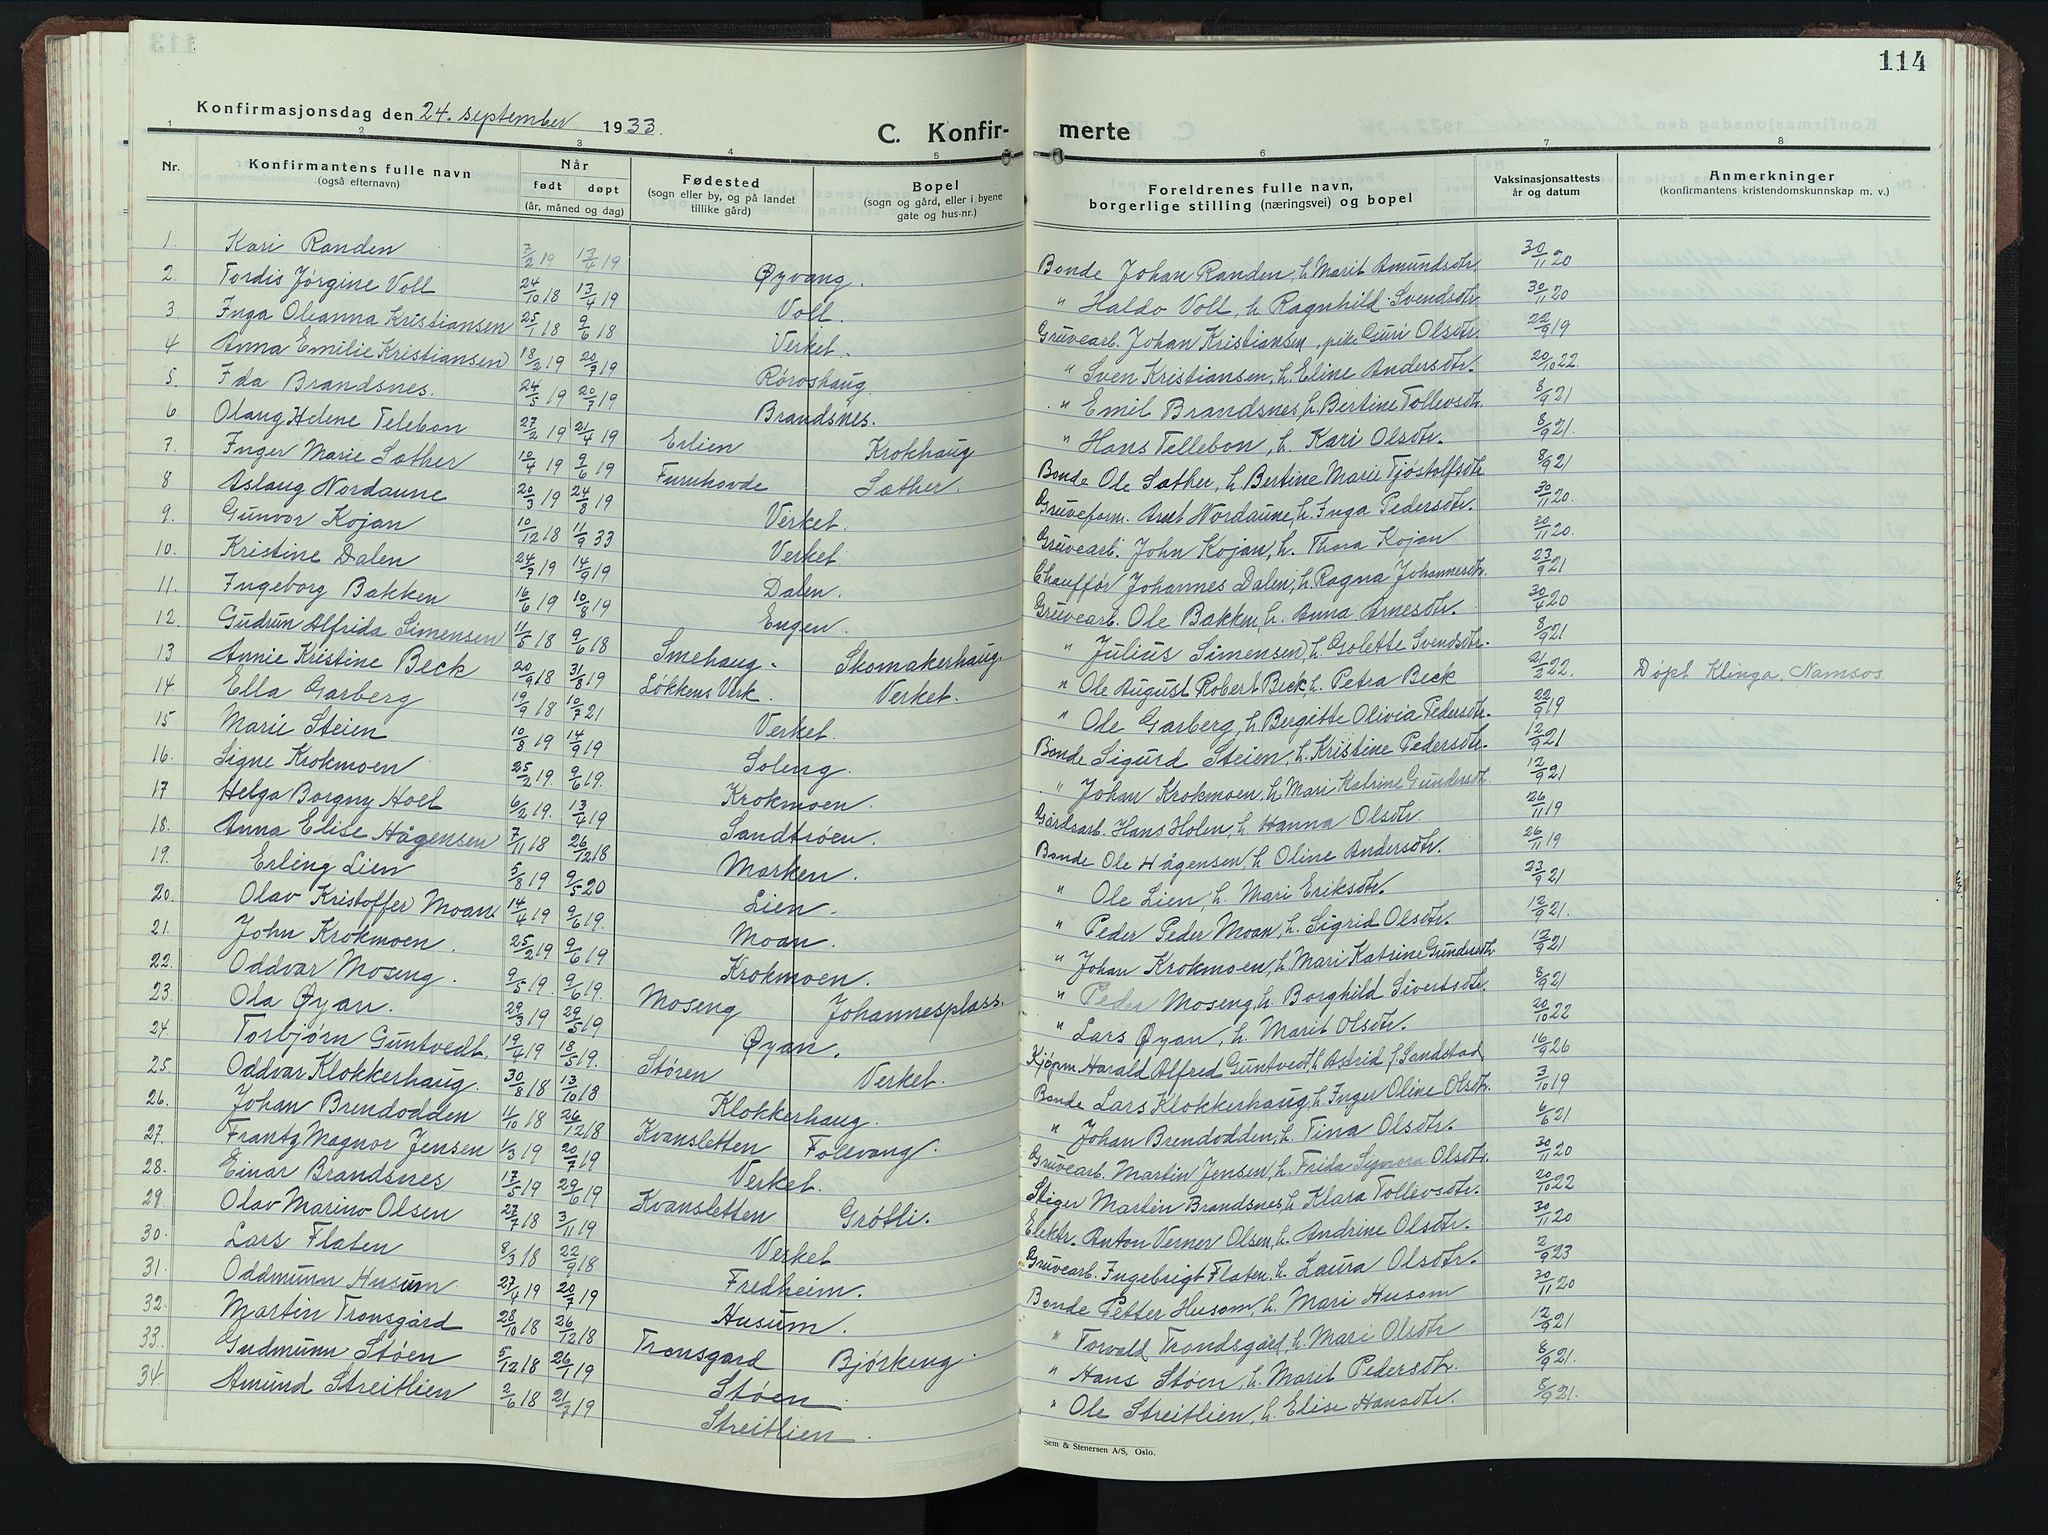 114
Konfirmasjonsdag den 24. september 1933.
C. Konfir- merte
1 2 3 4 5 6 7 8
Nr. Konfirmantens fulle navn (også efternavn) Når født døpt (år, måned og dag) Fødested (sogn eller by, og på landet tillike gård) Bopel (sogn og gård, eller i byene gate og hus-nr.) Foreldrenes fulle navn, borgerlige stilling (næringsvei) og bopel Vaksinasjonsattests år og datum Anmerkninger (konfirmantens kristendomskunnskap m. v.)
1. Kari Randen 7/2 19 13/4 19 Øyvang. Bonde Johan Randen, h. Marit Amundsdtr. 30/11 20
2. Tordis Jørgine Voll 24/10 18 13/4 19 Voll. " Haldo Voll, h. Ragnhild Svendsdtr. 30/11 20
3. Inga Oleanna Kristiansen 25/1 18 9/6 18 Verket. Gruvearb. Johan Kristiansen, pike Guri Olsdtr. 22/9 19
4 Anna Emilie Kristiansen 18/2 19 20/7 19 Røroshaug. " Sven Kristiansen, h. Eline Andersdtr. 20/10 22.
5. Ida Brandsnes. 24/5 19 20/7 19 Brandsnes. " Emil Brandsnes, h. Bertine Tollevsdtr. 8/9 21
6. Olaug Helene Telebon 27/2 19 21/4 19 Erlien Krokhaug " Hans Tellebon, h. Kari Olsdtr. 8/9 21.
7. Inger Marie Sæther 10/4 19 9/6 19 Furuhovde Sæther. Bonde Ole Sæther, h. Bertine Marie Tjøstolfsdtr. 8/9 21
8 Aslaug Nordaune 20/3 19 24/8 19 Verket. Gruveform. Arnt Nordaune, h. Inga Pedersdtr. 30/11 20.
9. Gunvor Kojan 10/12 18 11/9 33 Verket Gruvearb. John Kojan, h. Thora Kojan 30/11 20.
10. Kristine Dalen 24/7 19 14/9 19 Dalen. Chauffør Johannes Dalen, h. Ragna Johannesdtr. 23/9 21
11. Ingeborg Bakken 16/6 19 10/8 19 Engen. Gruvearb. Ole Bakken, h. Anna Arnesdtr. 30/4 20
12. Gudrun Alfrida Simensen 11/5 18 9/6 18 Smehaug. Skomakerhaug. " Julius Simensen, h. Golette Svendsdtr. 8/9 21
13 Annie Kristine Beck 20/9 18 31/8 19 Løkkens Verk. Verket. " Ole August Robert Beck, h. Petra Beck 21/2 22. Døpt Klinga, Namsos
14. Ella Garberg 19/9 18 10/7 21 Verket. " Ole Garberg, h. Bergitte Olivia Pedersdtr. 22/9 19
15 Marie Steien 10/8 19 14/9 19 Soleng. Bonde Sigurd Steien, h. Kristine Pedersdtr. 12/9 21
16. Signe Krokmoen 25/2 19. 9/6 19. Krokmoen. " Johan Krokmoen, h. Mari Katrine Gundersdtr. 12/9 21
17 Helga Borgny Holt 6/2 19. 13/4 19 Sandtrøen. Gårdsarb. Hans Holen, h. Hanna Olsdtr. 26/11 19
18. Anna Elise Hågensen 7/11 18 26/12 18 Marken. Bonde Ole Hågensen, h. Oline Andersdtr. 26/11 19
19. Erling Lien 5/8 19 9/5 20 Lien. " Ole Lien, h. Mari Eriksdtr. 23/9 21
20. Olav Kristoffer Moan 14/4 19 9/6 19. Moan. " Peder Peder Moan, h. Sigrid Olsdtr. 12/9 21.
21. John Krokmoen. 25/2 19 9/6 19 Krokmoen. " Johan Krokmoen, h. Mari Katrine Gundersdtr 12/9 21
22. Oddvar Moseng. 9/5 19. 9/6 19. Moseng Johannesplass. " Peder Moseng, h. Borghild Sivertsdtr. 8/9 21
23. Ola Øyan. 29/3 19 29/5 19 Øyan. " Lars Øyan, h. Marit Olsdtr. 20/10 22
24 Torbjørn Guntvedt. 19/4 19 18/5 19. Støren Verket. Kjøpm. Harald Alfred Guntvedt, h. Astrid f. Sandstad 16/9 26
25. Oddvar Klokkerhaug. 30/8 18 13/10 18 Klokkerhaug. Bonde Lars Klokkerhaug, h. Inger Oline Olsdtr. 3/10 19
26. Johan Brendodden 11/10 18 26/12 18 Kvansletten Folevang. " Johan Brendodden, h. Tina Olsdtr. 6/6 21
27. Frantz Magnor Jensen 1/3 19 20/7 19 Verket. Gruvearb. Martin Jensen, h. Frida Signora Olsdtr. 30/11 20
28. Einar Brandsnes 17/5 19 29/6 19 Kvansletten Grøtli. Stiger Martin Brandsnes, h. Klara Tollevsdtr. 20/10 22
29. Olav Marino Olsen 27/7 18 3/11 19 Verket Elektr. Anton Verner Olsen, h. Andrine Olsdtr. 30/11 20
30. Lars Flaten 8/3 18 22/9 18 Fredheim. Gruvearb. Ingebrigt Flaten, h. Laura Olsdtr. 2/9 23
31. Oddmunn Husum 27/4 19 20/7 19 Husum. Bonde Petter Husom, h. Mari Husom 30/11 20
32. Martin Tronsgård 28/10 18 26/12 18 Tronsgard Bjørkeng. " Torvald Trondsgård, h. Mari Olsdtr 12/9 21
33. Gudmunn Støen 5/12 18 26/1 19 Støen " Hans Støen, h. Marit Pedersdtr. 8/9 21.
34. Amund Streitlien 2/6 18 21/7 19 Streitlien. " Ole Streitlien, h. Elise Hansdtr. 8/9 21.
Sem & Stenersen A/S, Oslo.